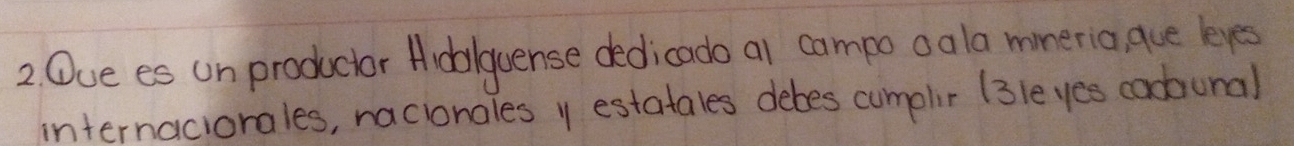 2. Que es un productor Hidalguense dedicado al campo o a la mineria, que leyes
internacionales, nacionales y estatales debes cumplir (3 leyes cada una)